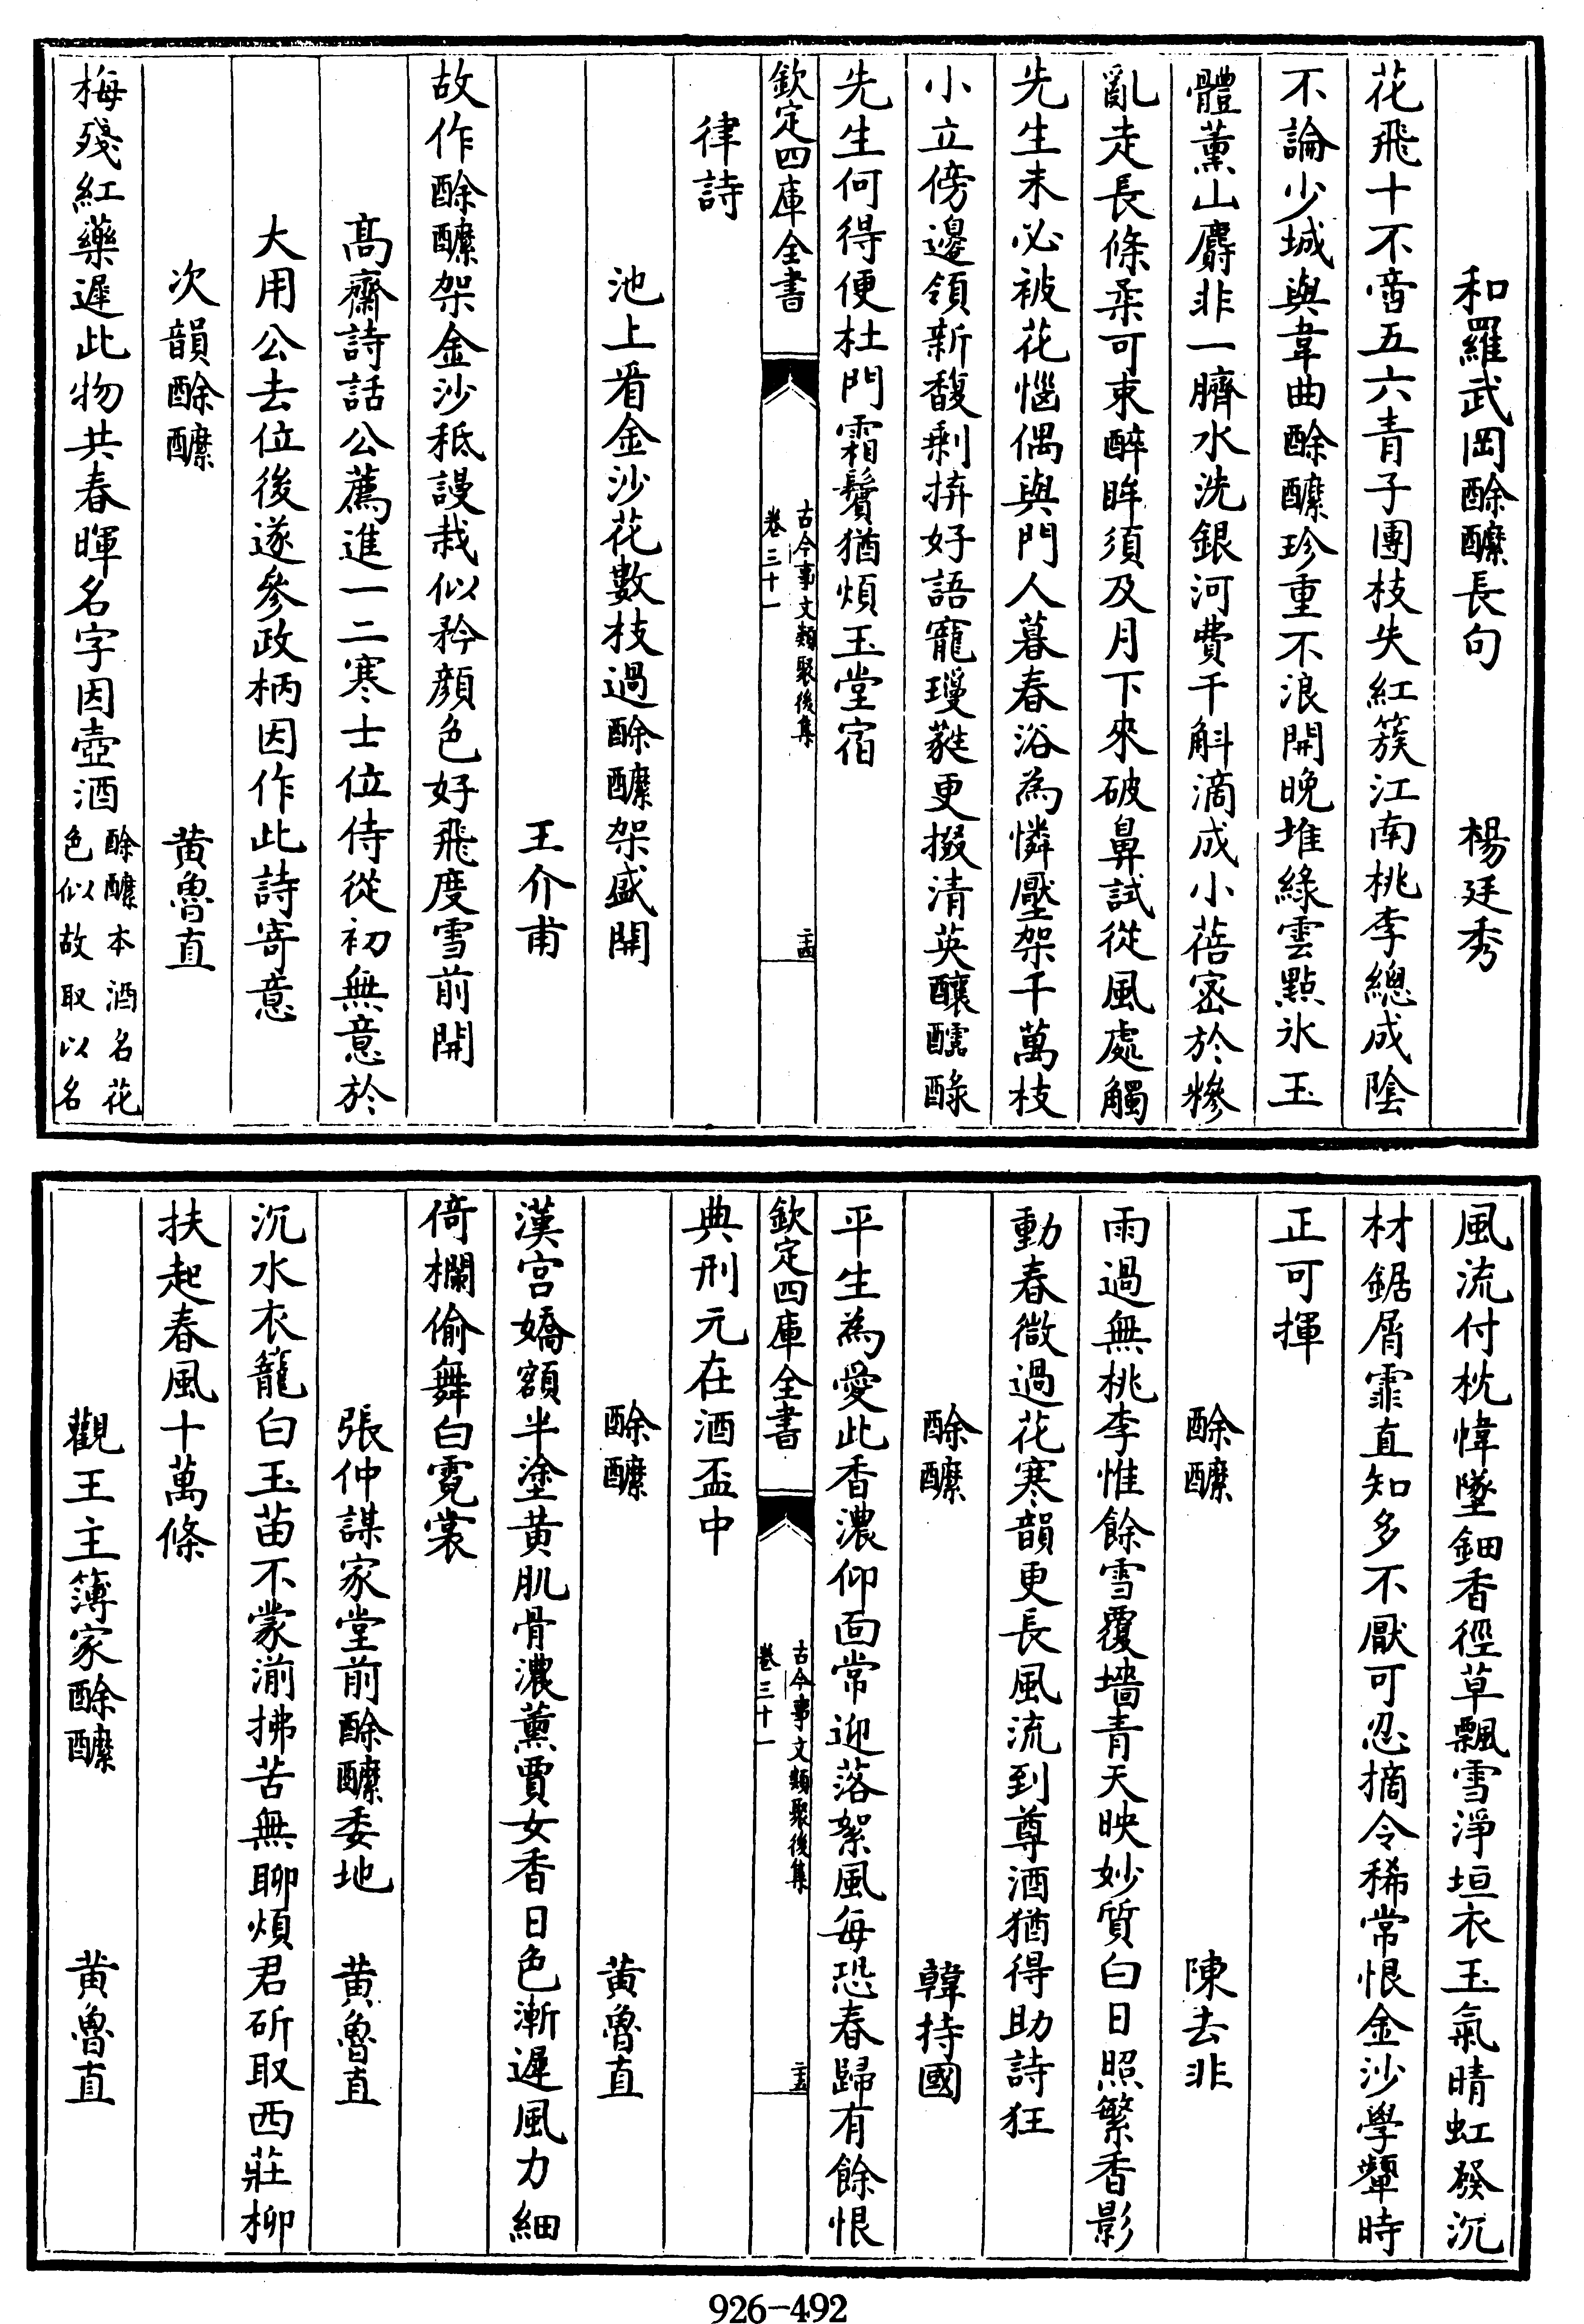 和羅武岡酴醿長句　楊廷秀
花飛十不啻五六青子團枝失紅簇江南桃李總成陰
不論少城與韋曲酴醿珍重不浪開晚堆綠雲點氷玉
體薰山麝非一臍水洗銀河費千斛滴成小蓓宻於糝
亂走長條柔可束醉眸須及月下來破鼻試從風處觸
先生未必被花惱偶與門人暮春浴為憐壓架千萬枝
小立傍邊領新馥剩拚好語寵璦蕤更掇清英釀醽醁
先生何得便杜門霜鬢猶煩玉堂宿
欽定四庫全書
古今事文類聚後集
卷三十一
二十四
律詩
池上看金沙花數枝過酴醿架盛開
王介甫
故作酴醿架金沙秪謾栽似矜顔色好飛度雪前開
髙齋詩話公薦進一二寒士位侍從初無意於
大用公去位後遂參政柄因作此詩寄意
次韻酴醿　黄魯直
梅殘紅藥遲此物共春暉名字因壺酒酴醿本酒名花色似故取以名
風流付枕幃墜鈿香徑草飄雪淨垣衣玉氣晴虹發沉
材鋸屑霏直知多不厭可忍摘令稀常恨金沙學顰時
正可揮
酴醿　陳去非
雨過無桃李惟餘雪覆墻青天映妙質白日照繁香影
動春微過花寒韻更長風流到尊酒猶得助詩狂
酴醿　韓持國
平生為愛此香濃仰面常迎落絮風每恐春歸有餘恨
欽定四庫全書
古今事文類聚後集
卷三十一
二十五
典刑元在酒盃中
酴醿　黄魯直
漢宫嬌額半塗黄肌骨濃薰賈女香日色漸遲風力細
倚欄偷舞白霓裳
張仲謀家堂前酴醿委地　黄魯直
沉水衣籠白玉苗不蒙湔拂苦無聊煩君斫取西莊柳
扶起春風十萬條
觀王主簿家酴醿　黄魯直
926-492